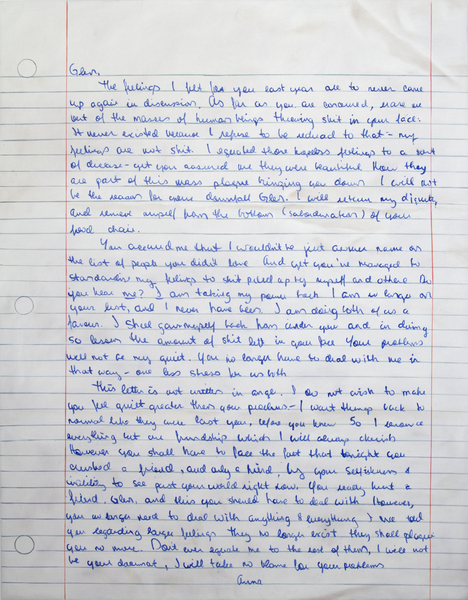 Glen,
The feelings I felt for you last year are to never come
up again in discussion. As far as you are concerned, erase me
out of the masses of human beings throwing shit in your face.
It never existed because I refuse to be reduced to that - my
feelings are not shit. I equated those hopeless feelings to a sort
of disease - yet you assured me they were beautiful. Now they
are part of this mass plague bringing you down. I will not
be the reason for more downfall Glen. I will retain my dignity,
and remove myself from the bottom (subordination) of your
food chain.
You assured me that I wouldn't be just another name on
the list of people you didn't love. And yet you've managed to
my feelings to shit piled up by myself and others. Do
you hear me? I am taking my power back. I am no longer on
your list, and I never have been. I am doing both of us a
favour. I shall myself back from under you and in doing
so lessen the amount of shit left in your face. Your problems
will not be my guilt. You no longer have to deal with me in
that way - one less stress for us both.
This letter is not written in anger. I do not wish to make
you feel guilt greater than your problems - I want things back to
normal like they were last year, before you knew. So I renounce
everything but our friendship which I will always cherish.
However you shall have to face the fact that tonight you
crushed a friend, and only a friend, by your selfishness &
inability to see past your world right now. You really hurt a
friend, Glen, and this you should have to deal with. However,
you no longer need to deal with anything & everything I ever told
you regarding larger feelings. They no longer exist. They shall plague
you no more. Don't ever equate me to the rest of them, I will not
be your doormat, I will take no blame for your problems
Anna